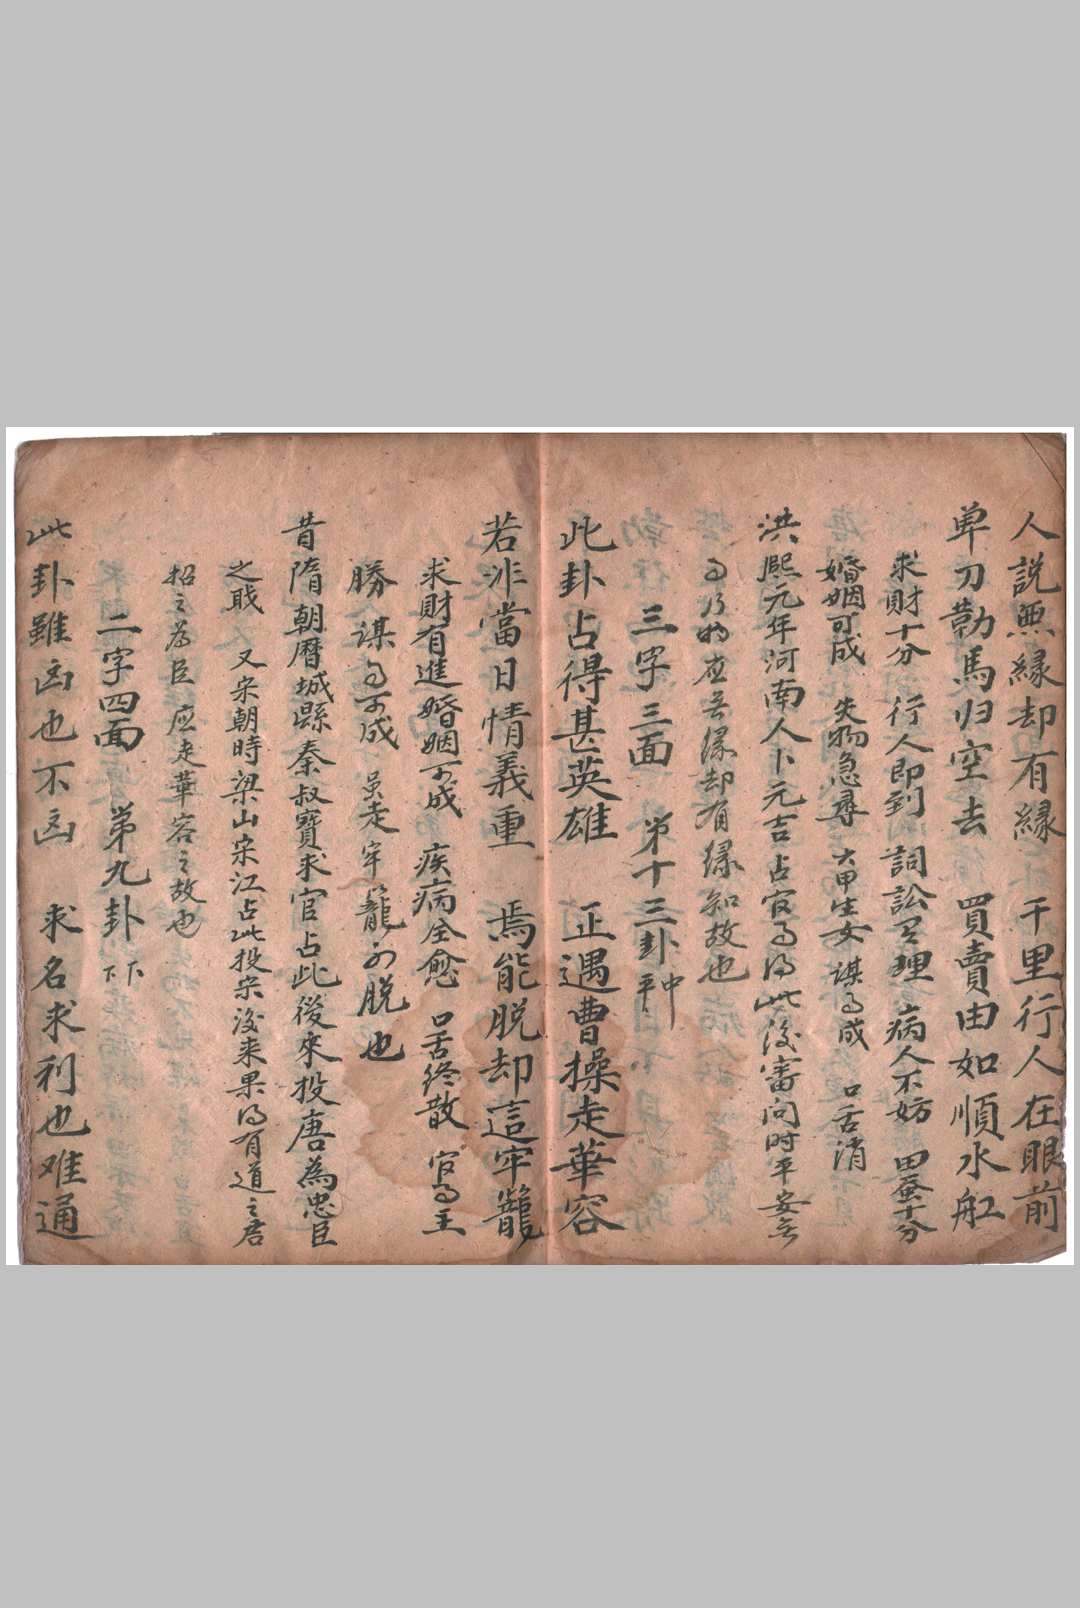 人說無緣却有緣　千里行人在眼前
单刀勒馬归空去　買賣由如順水舡
求財十分　行人即到　詞訟有理　病人不妨　田蚕十分
婚姻可成　失物急尋　六甲生女　謀事成　口舌消
洪熙元年河南人卜元吉占官事得此後審问時平安無
事乃的应無缘却有缘知故也
三字三面　第十三卦　中平
此卦占得甚英雄　正遇曹操走華容
若非當日情義重　焉能脱却這牢籠
求財有進　婚姻可成　疾病全愈　口舌終散　官事主
勝　謀事可成　是走牢籠可脱也
昔隋朝曆城縣秦叔寶求官占此後來投唐為忠臣
之戝　又宋朝時梁山宋江占此投宋後来果得有道之君
招之为臣　应走華容之故也
二字四面　第九卦　下下
此卦雖凶也不凶　求名求利也难通